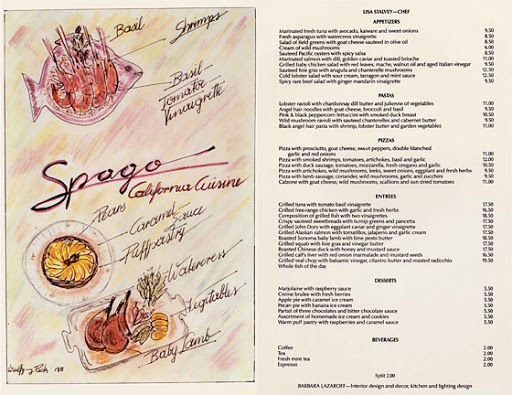 Basil
Shrimps
Basil
Tomato
Vinaigrette
Spago
California Cuisine
Pears
Caramel
Sauce
Puffpastry
Watercress
Vegetables
Baby Lamb
LISA STALVEY—CHEF
APPETIZERS
Marinated fresh tuna with avocado, kaiware and sweet onions 9.50
Fresh asparagus with watercress vinaigrette 8.50
Salad of field greens with goat cheese sauteed in olive oil 8.50
Cream of wild mushrooms 6.00
Sauteed Pacific oysters with spicy salsa 8.50
Marinated salmon with dill, golden caviar and toasted brioche 11.00
Grilled baby chicken salad with red leaves, mache, walnut oil and aged Italian vinegar 9.50
Sauteed foie gras with arugula and chanterelle mushrooms 14.50
Cold lobster salad with sour cream, tarragon and mint sauce 12.50
Spicy rare beef salad with ginger mandarin vinaigrette 9.50
PASTAS
Lobster ravioli with chardonnay dill butter and julienne of vegetables 11.00
Angel hair noodles with goat cheese, broccoli and basil 9.50
Pink & black peppercorn fettuccini with smoked duck breast 10.50
Wild mushroom ravioli with sauteed chanterelles and cabernet butter 10.50
Black angel hair pasta with shrimp, lobster butter and garden vegetables 11.00
PIZZAS
Pizza with prosciutto, goat cheese, sweet peppers, double blanched
garlic and red onions 11.00
Pizza with smoked shrimps, tomatoes, artichokes, basil and garlic 12.00
Pizza with duck sausage, tomatoes, mozzarella, fresh oregano and garlic 10.50
Pizza with artichokes, wild mushrooms, leeks, sweet onions, eggplant and fresh herbs 9.50
Pizza with lamb sausage, coriander, wild mushrooms, garlic and zucchini 9.50
Calzone with goat cheese, wild mushrooms, scallions and sun dried tomatoes 11.00
ENTREES
Grilled tuna with tomato basil vinaigrette 17.50
Grilled free-range chicken with garlic and fresh herbs 16.50
Composition of grilled fish with two vinaigrettes 18.50
Crispy sauteed sweetbreads with turnip greens and pancetta 17.50
Grilled John Dory with eggplant caviar and ginger vinaigrette 17.50
Grilled Alaskan salmon with tomatillos, jalapeno and garlic cream 17.50
Roasted Sonoma baby lamb with lime pesto butter 18.50
Grilled squab with foie gras and vinegar butter 17.50
Roasted Chinese duck with honey and mustard sauce 17.50
Grilled calf's liver with red onion marmalade and mustard seeds 16.50
Grilled veal chop with balsamic vinegar, cilantro butter and roasted radicchio 19.50
Whole fish of the day
DESSERTS
Marjolaine with raspberry sauce 5.50
Creme brulee with fresh berries 5.50
Apple pie with caramel ice cream 5.50
Pecan pie with banana ice cream 5.50
Parfait of three chocolates and bitter chocolate sauce 5.50
Assortment of homemade ice cream and cookies 5.50
Warm puff pastry with raspberries and caramel sauce 5.50
BEVERAGES
Coffee 2.00
Tea 2.00
Fresh mint tea 2.00
Espresso 2.00
Split 2.00
BARBARA LAZAROFF—Interior design and decor, kitchen and lighting design